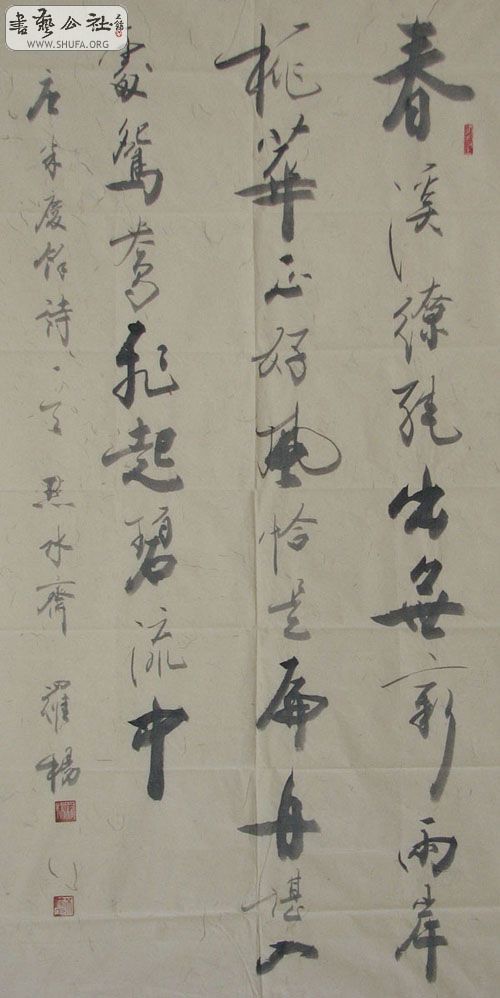 書藝公社
WWW.SHUFA.ORG
春溪繚繞出無窮兩岸
桃華正好風恰是扁舟堪入
處鴛鴦飛起碧流中
唐朱慶餘詩一首 點水齋 羅楊